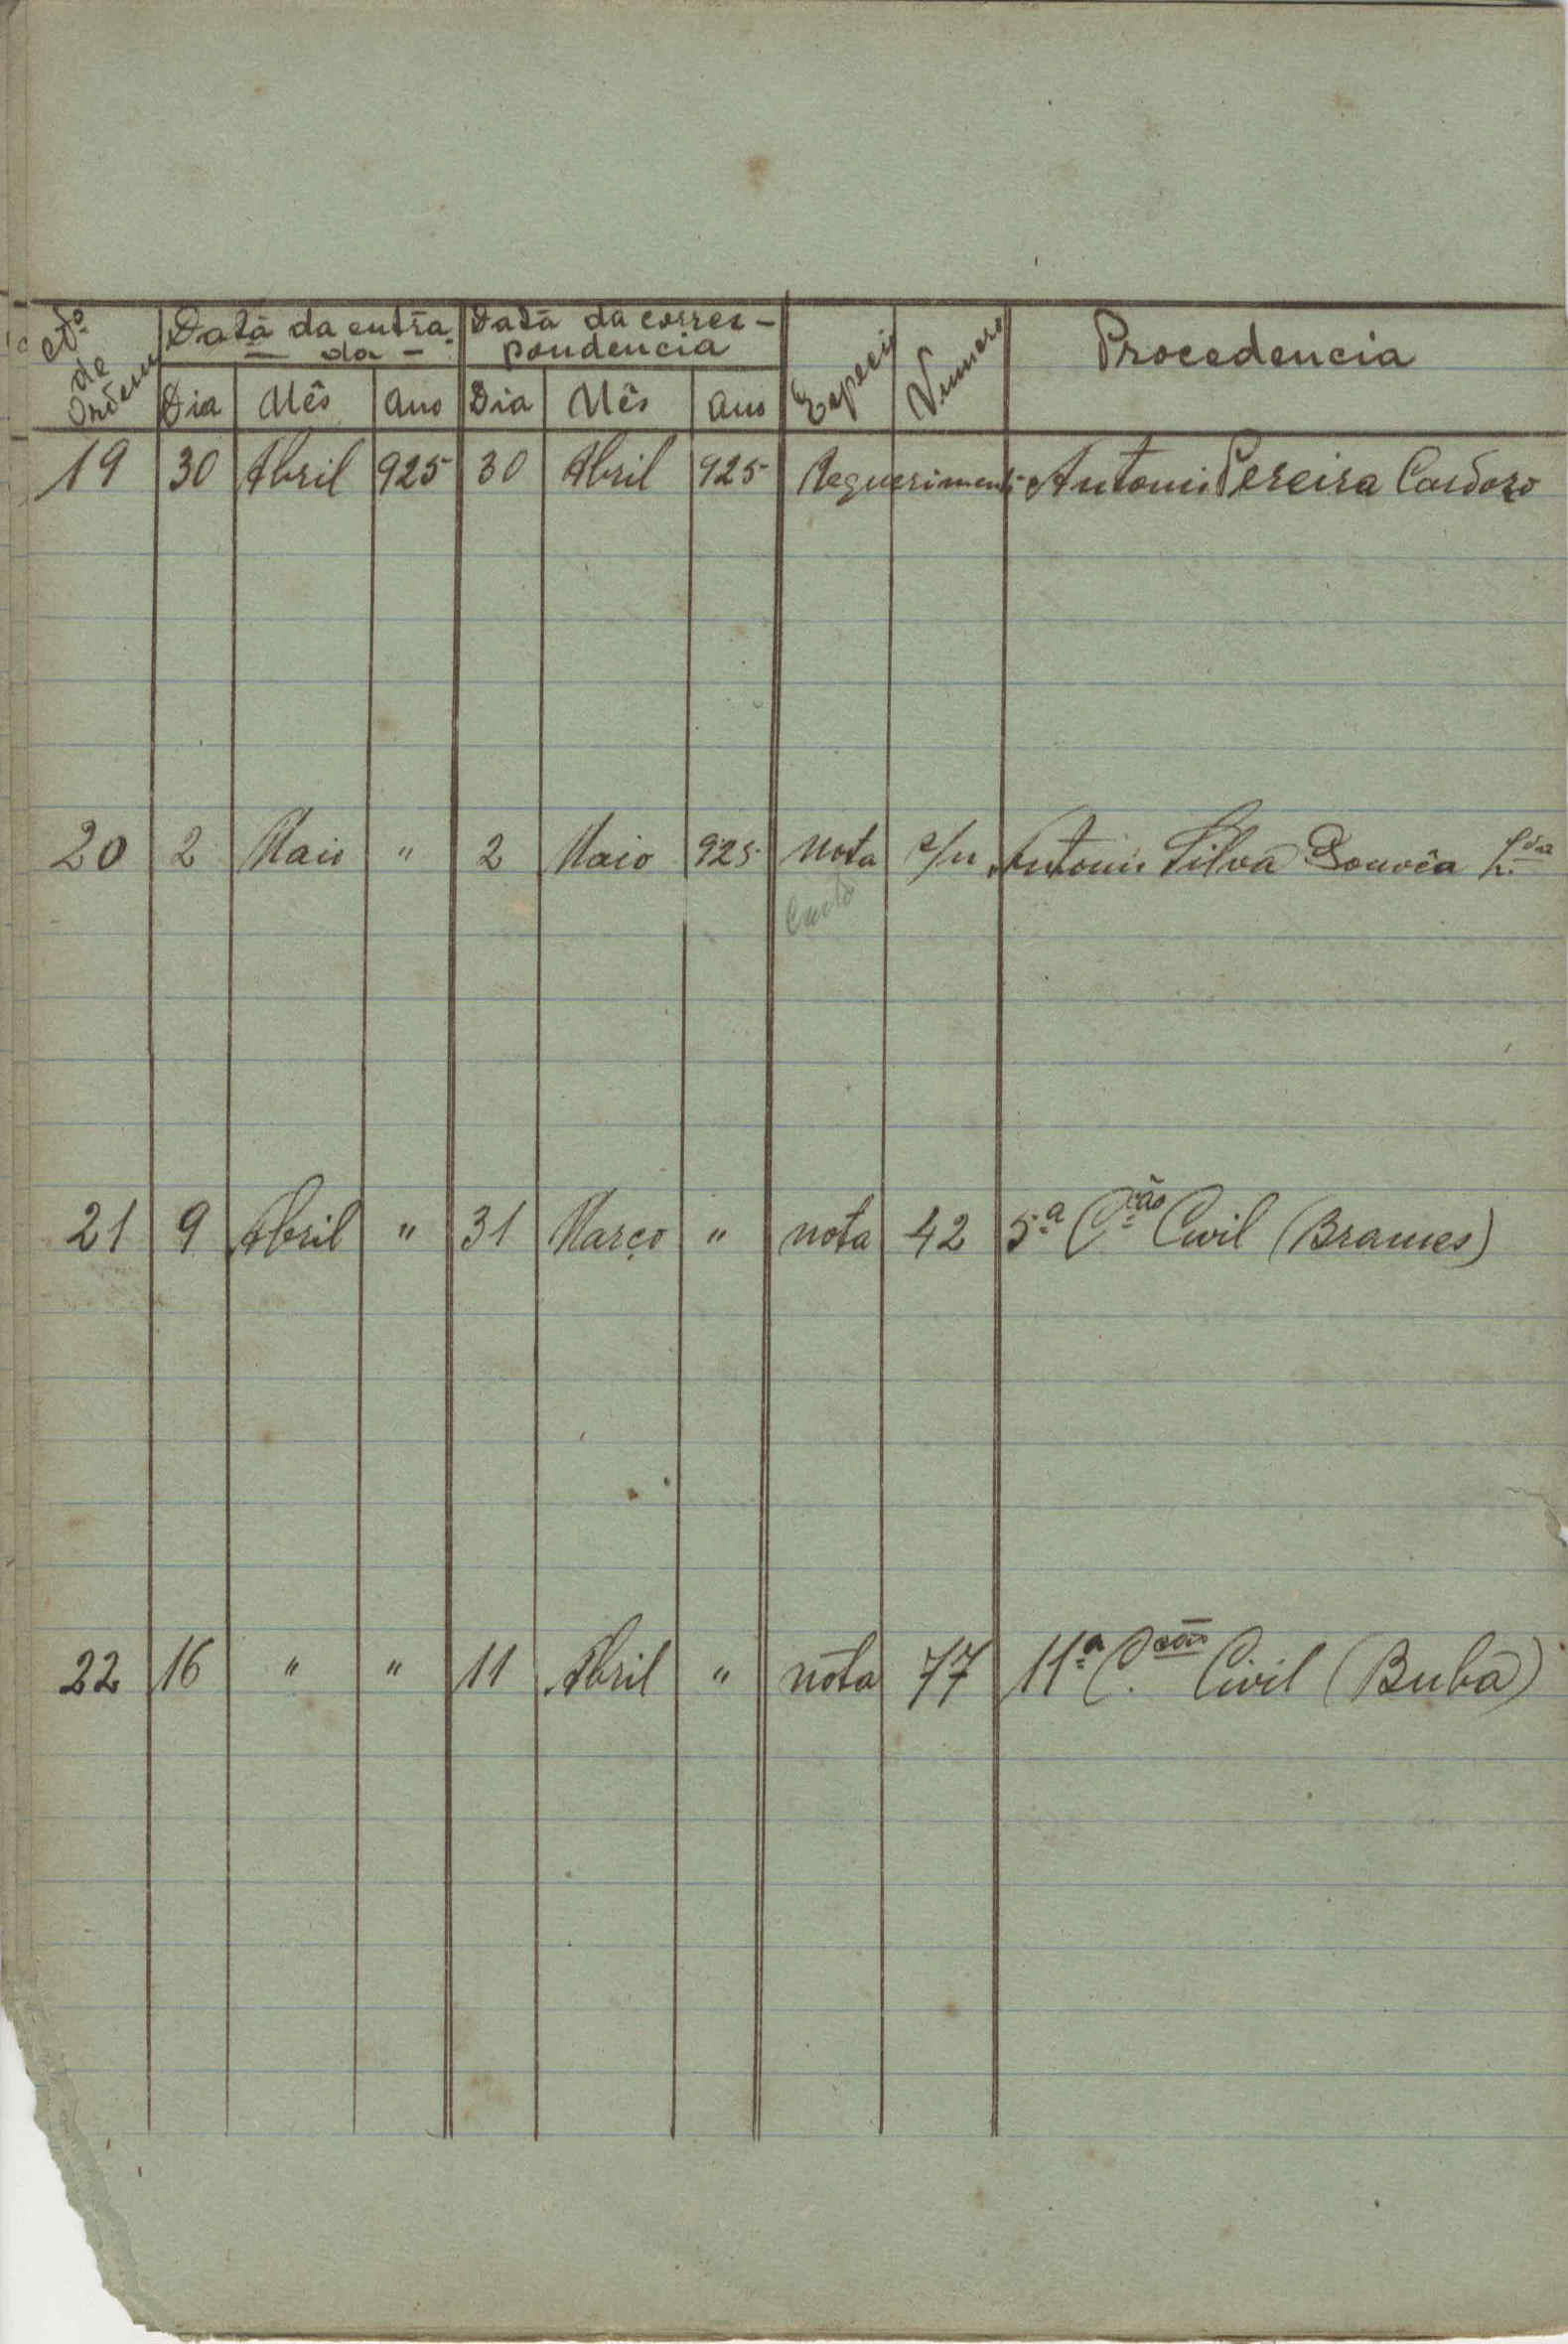 Nº de Ordem | Data da entrada | Data da correspondencia | Especie | Numero | Procedencia
Dia | Mês | Ano | Dia | Mês | Ano
19 | 30 | Abril | 925 | 30 | Abril | 925 | Requerimento | Antonio Pereira Cardozo
20 | 2 | Maio | " | 2 | Maio | 925 | Nota | s/n | Antonio Silva Gouvêa L.da
Carta
21 | 9 | Abril | " | 31 | Março | " | nota | 42 | 5.ª C.ção Civil (Brames)
22 | 16 | " | " | 11 | Abril | " | nota | 77 | 11.ª C.ção Civil (Buba)